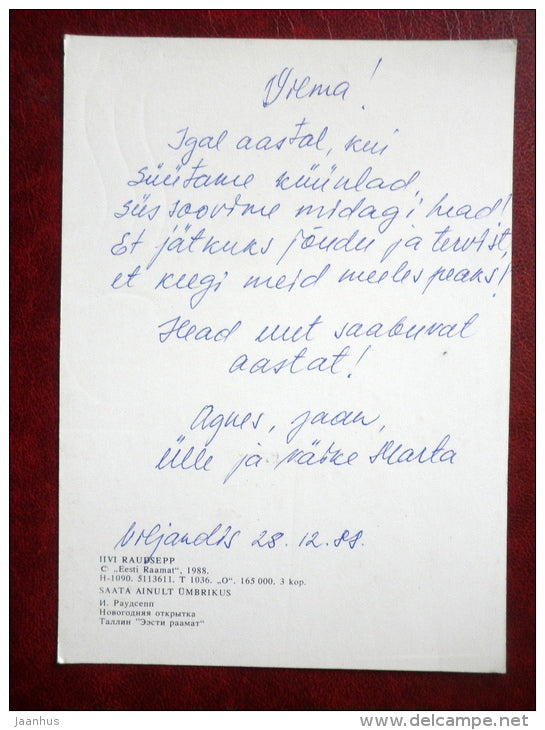 Vilma!
Igal aastal, kui
süütame küünlad,
siis soovime midagi head!
Et jätkuks jõudu ja tervist,
et keegi meid meeles peaks!
Head uut saabuvat
aastat!
Agnes, Jaan,
Ülle ja väike Marta
Viljandis 28.12.88.
IIVI RAUDSEPP
© „Eesti Raamat“, 1988.
H-1090. 5113611. T 1036. „O“. 165 000. 3 kop.
SAATA AINULT ÜMBRIKUS
И. Раудсепп
Новогодняя открытка
Таллин "Ээсти раамат"
jaanhus
delcampe.net